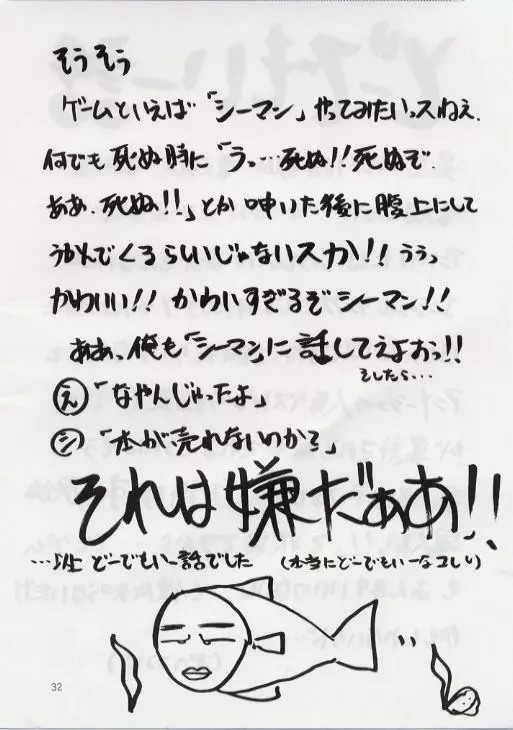 そうそう
ゲームといえば「シーマン」やってみたいっスねぇ.
何でも死ぬ時に「うっ…死ぬ!!死ぬぞ
ああ、死ぬ!!」とか呻いた後に腹上にして
うかんでくるらしいじゃないスか!!ううっ
かわいい!!かわいすぎるぞシーマン!!
ああっ俺も「シーマン」に話してえよおっ!!
そしたら…
え「なやんじゃったよ」
シ「本が売れないのか?」
それは嫌だぁあ!!
…以上 どーでもいー話でした (本当にどーでもいーなコレ)
32